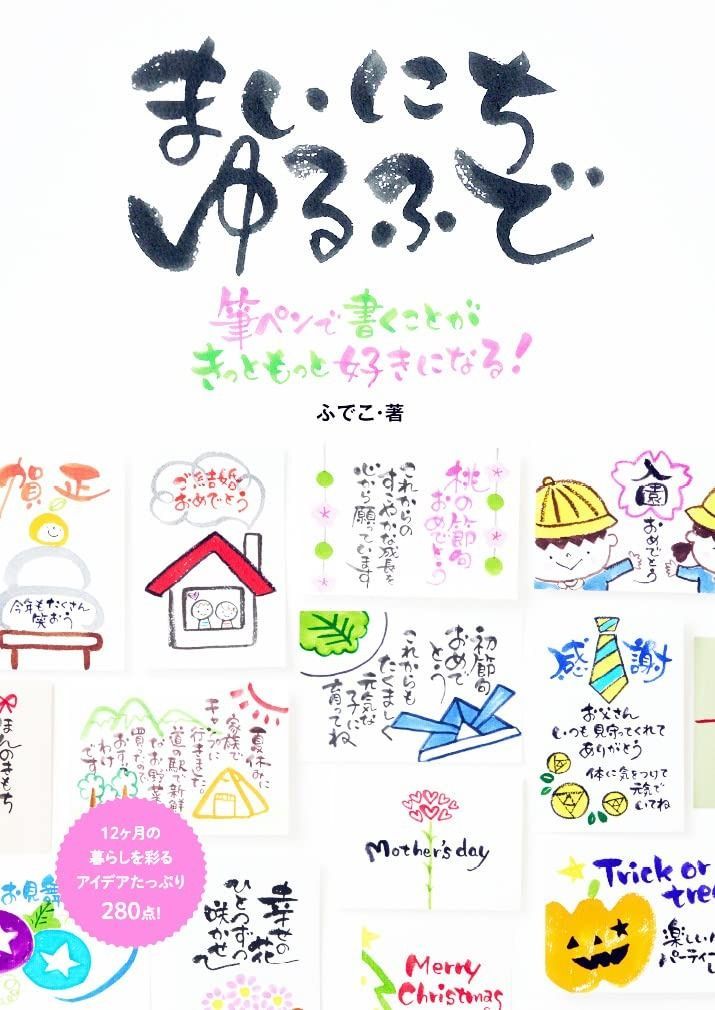 まいにち
ゆるふで
筆ペンで書くことが
きっともっと好きになる!
ふでこ・著
賀正
今年もたくさん
笑おう
ご結婚
おめでとう
桃の節句
おめでとう
これからの
すこやかな成長を
心から願っています
入園
おめでとう
初節句
おめで
とう
これからも
たくましく
元気な
子に
育ってね
感謝
お父さん
いつも見守ってくれて
ありがとう
体に気をつけて
元気で
いてね
ほんのきもち
夏休みに
家族で
キャンプに
行きました。
道の駅で新鮮
なお野菜
買ったので
おすそ
わけ
です
12ヶ月の
暮らしを彩る
アイデアたっぷり
280点!
Mother's day
お見舞
幸せの花
ひとつずつ
咲かせ
Merry
Christmas
Trick or
tre
楽しい
パーティー